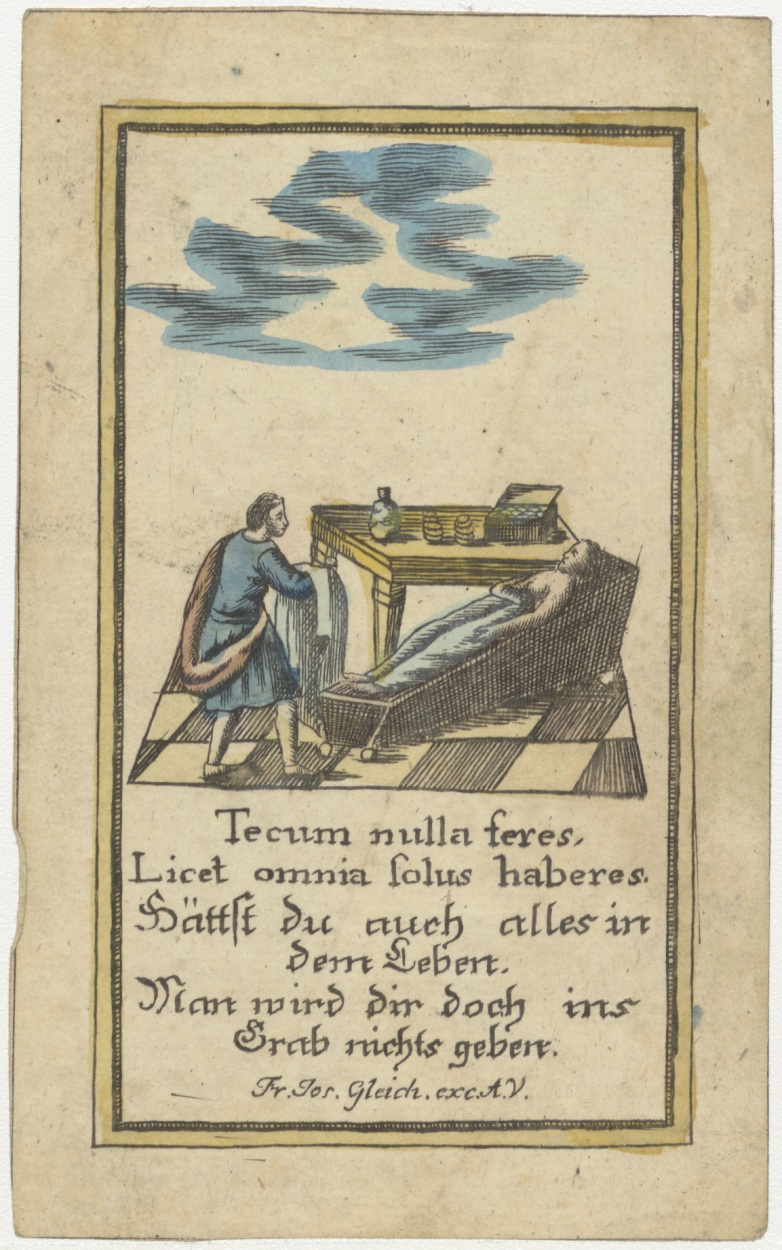 Tecum nulla feres,
Licet omnia ſolus haberes.
Hättſt du auch alles in
dem Leben.
Man wird dir doch ins
Grab nichts geben.
Fr. Jos. Gleich. exc. A.V.